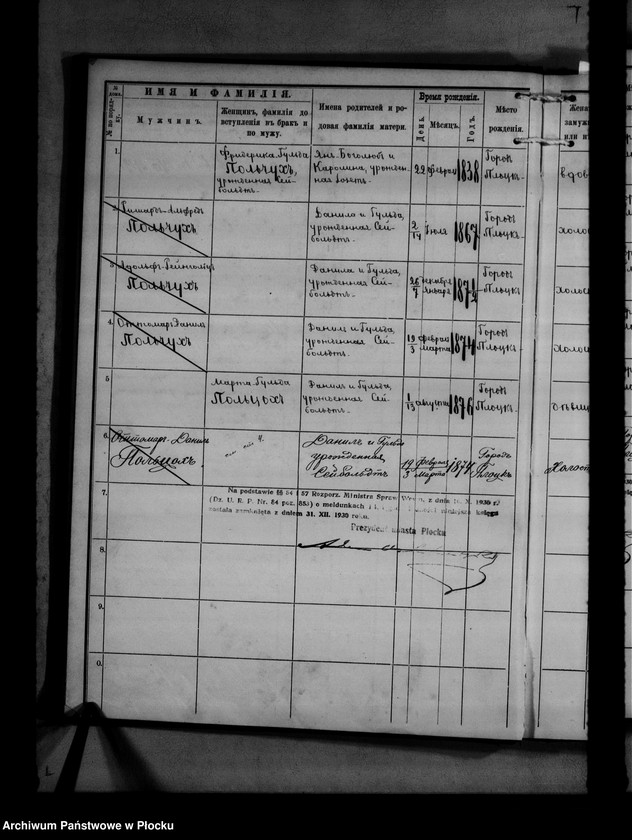 7
№ по порядку.
ИМЯ И ФАМИЛІЯ.
Мужчинъ.
Женщинъ, фамилія до
вступленія въ бракъ и
по мужу.
Имена родителей и ро-
довая фамилія матери.
Время рожденія.
День.
Мѣсяцъ.
Годъ.
Мѣсто
рожденія.
1.
Фридерика-Гульда
Польчухъ,
урожденная Сей-
больдтъ.
Янъ-Боголюбъ и
Каролина, урожден-
ная
22
февраля
1838
Городъ
Плоцкъ
вдов
2
Рихардъ-Альфредъ
Польчухъ
Данилъ и Гульда,
урожденная Сей-
больдтъ.
2/14
Іюля
1867
Городъ
Плоцкъ
холос
3
Адольфъ-Рейнгольдъ
Польчухъ
Данилъ и Гульда,
урожденная Сей-
больдтъ.
26
7
декабря
января
Городъ
Плоцкъ
холос
4.
Оттомаръ Данилъ
Польчухъ
Данилъ и Гульда,
урожденная Сей-
больдтъ.
19
3
февраля
марта
1874
Городъ
Плоцкъ
холос
5
Марта-Гульда
Польцохъ
Данилъ и Гульда,
урожденная Сей-
больдтъ.
1/13
августа
1876
Городъ
Плоцкъ.
6.
Оттомаръ-Данилъ
Польцохъ.
4.
Данилъ и Гульда
урожденная
Сейбольдтъ
19
3
Февраля
Марта
1874
Городъ
Плоцкъ
Холост
7.
Na podstawie §§ 54 i 57 Rozporz. Ministra Spraw Wewn. z dnia X. 1930 r.
(Dz. U. R. P. Nr. 84 poz. 653) o meldunkach i księgach ludności niniejsza księga
została zamknięta z dniem 31. XII. 1930 roku.
Prezydent miasta Płocka
8.
9.
0.
Archiwum Państwowe w Płocku